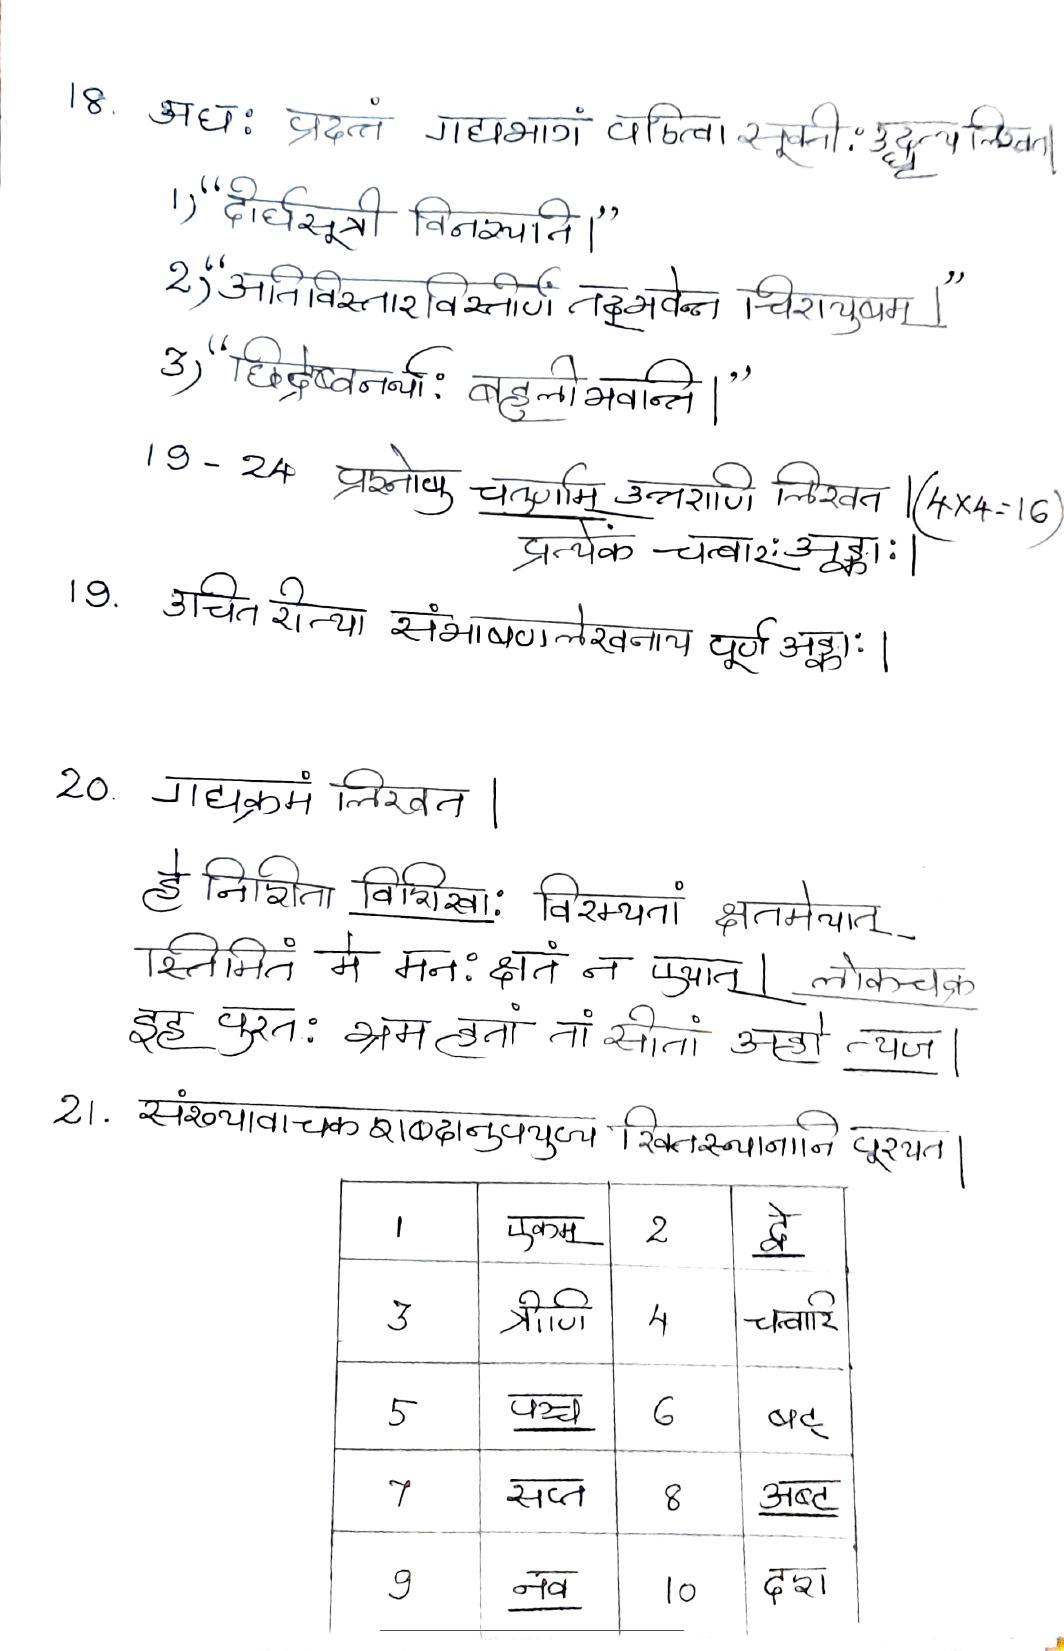 18. अधः प्रदत्तं गद्यभागं पठित्वा सूक्तीः उद्धृत्य लिखत।
1) “दीर्घसूत्री विनश्यति।”
2) “अतिविस्तारविस्तीर्णं तद्भवेन्न चिरायुषम्।”
3) “छिद्रेष्वनर्थाः बहुलीभवन्ति।”
19 - 24 प्रश्नेषु चतुर्णाम् उत्तराणि लिखत। (4x4=16)
प्रत्येकं चत्वारः अङ्काः।
19. उचितरीत्या संभाषणलेखनाय पूर्ण अङ्काः।
20. गद्यक्रमं लिखत।
हे निशिता विशिखाः विरम्यतां क्षतमेयात्
स्तिमितं मे मनः क्षतं न एयात्। लोकचक्र
इह पुरतः श्रमहतां तां सीतां अहो त्यज।
21. संख्यावाचकशब्दानुपयुज्य रिक्तस्थानानि पूरयत।
1 एकम् 2 द्वे
3 त्रीणि 4 चत्वारि
5 पञ्च 6 षट्
7 सप्त 8 अष्ट
9 नव 10 दश